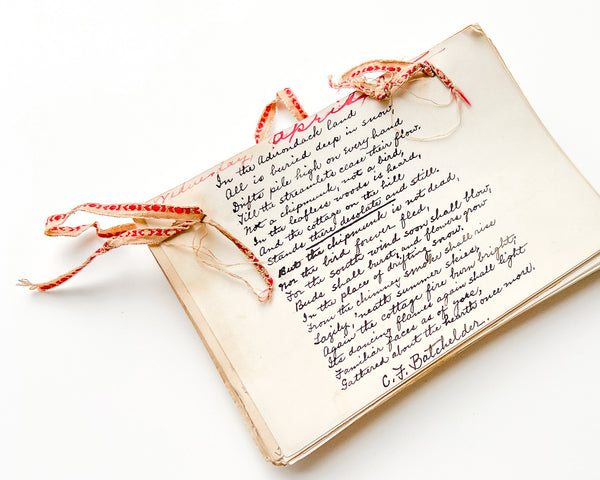 april
In the Adirondack land
All is buried deep in snow,
Drifts pile high on every hand
Till the streamlets cease their flow.
Not a chipmunk, not a bird,
In the leafless woods is heard,
And the cottage on the hill
Stands there desolate and still.
But the chipmunk is not dead,
Nor the bird forever fled,
For the south wind soon shall blow,
Buds shall burst, and flowers grow
In the place of drifting snow.
From the chimney smoke shall rise
Lazily, 'neath summer skies,
Again the cottage fire burn bright;
Its dancing flames again shall light
Familiar faces as of yore,
Gathered about the hearth once more.
C. F. Batchelder.